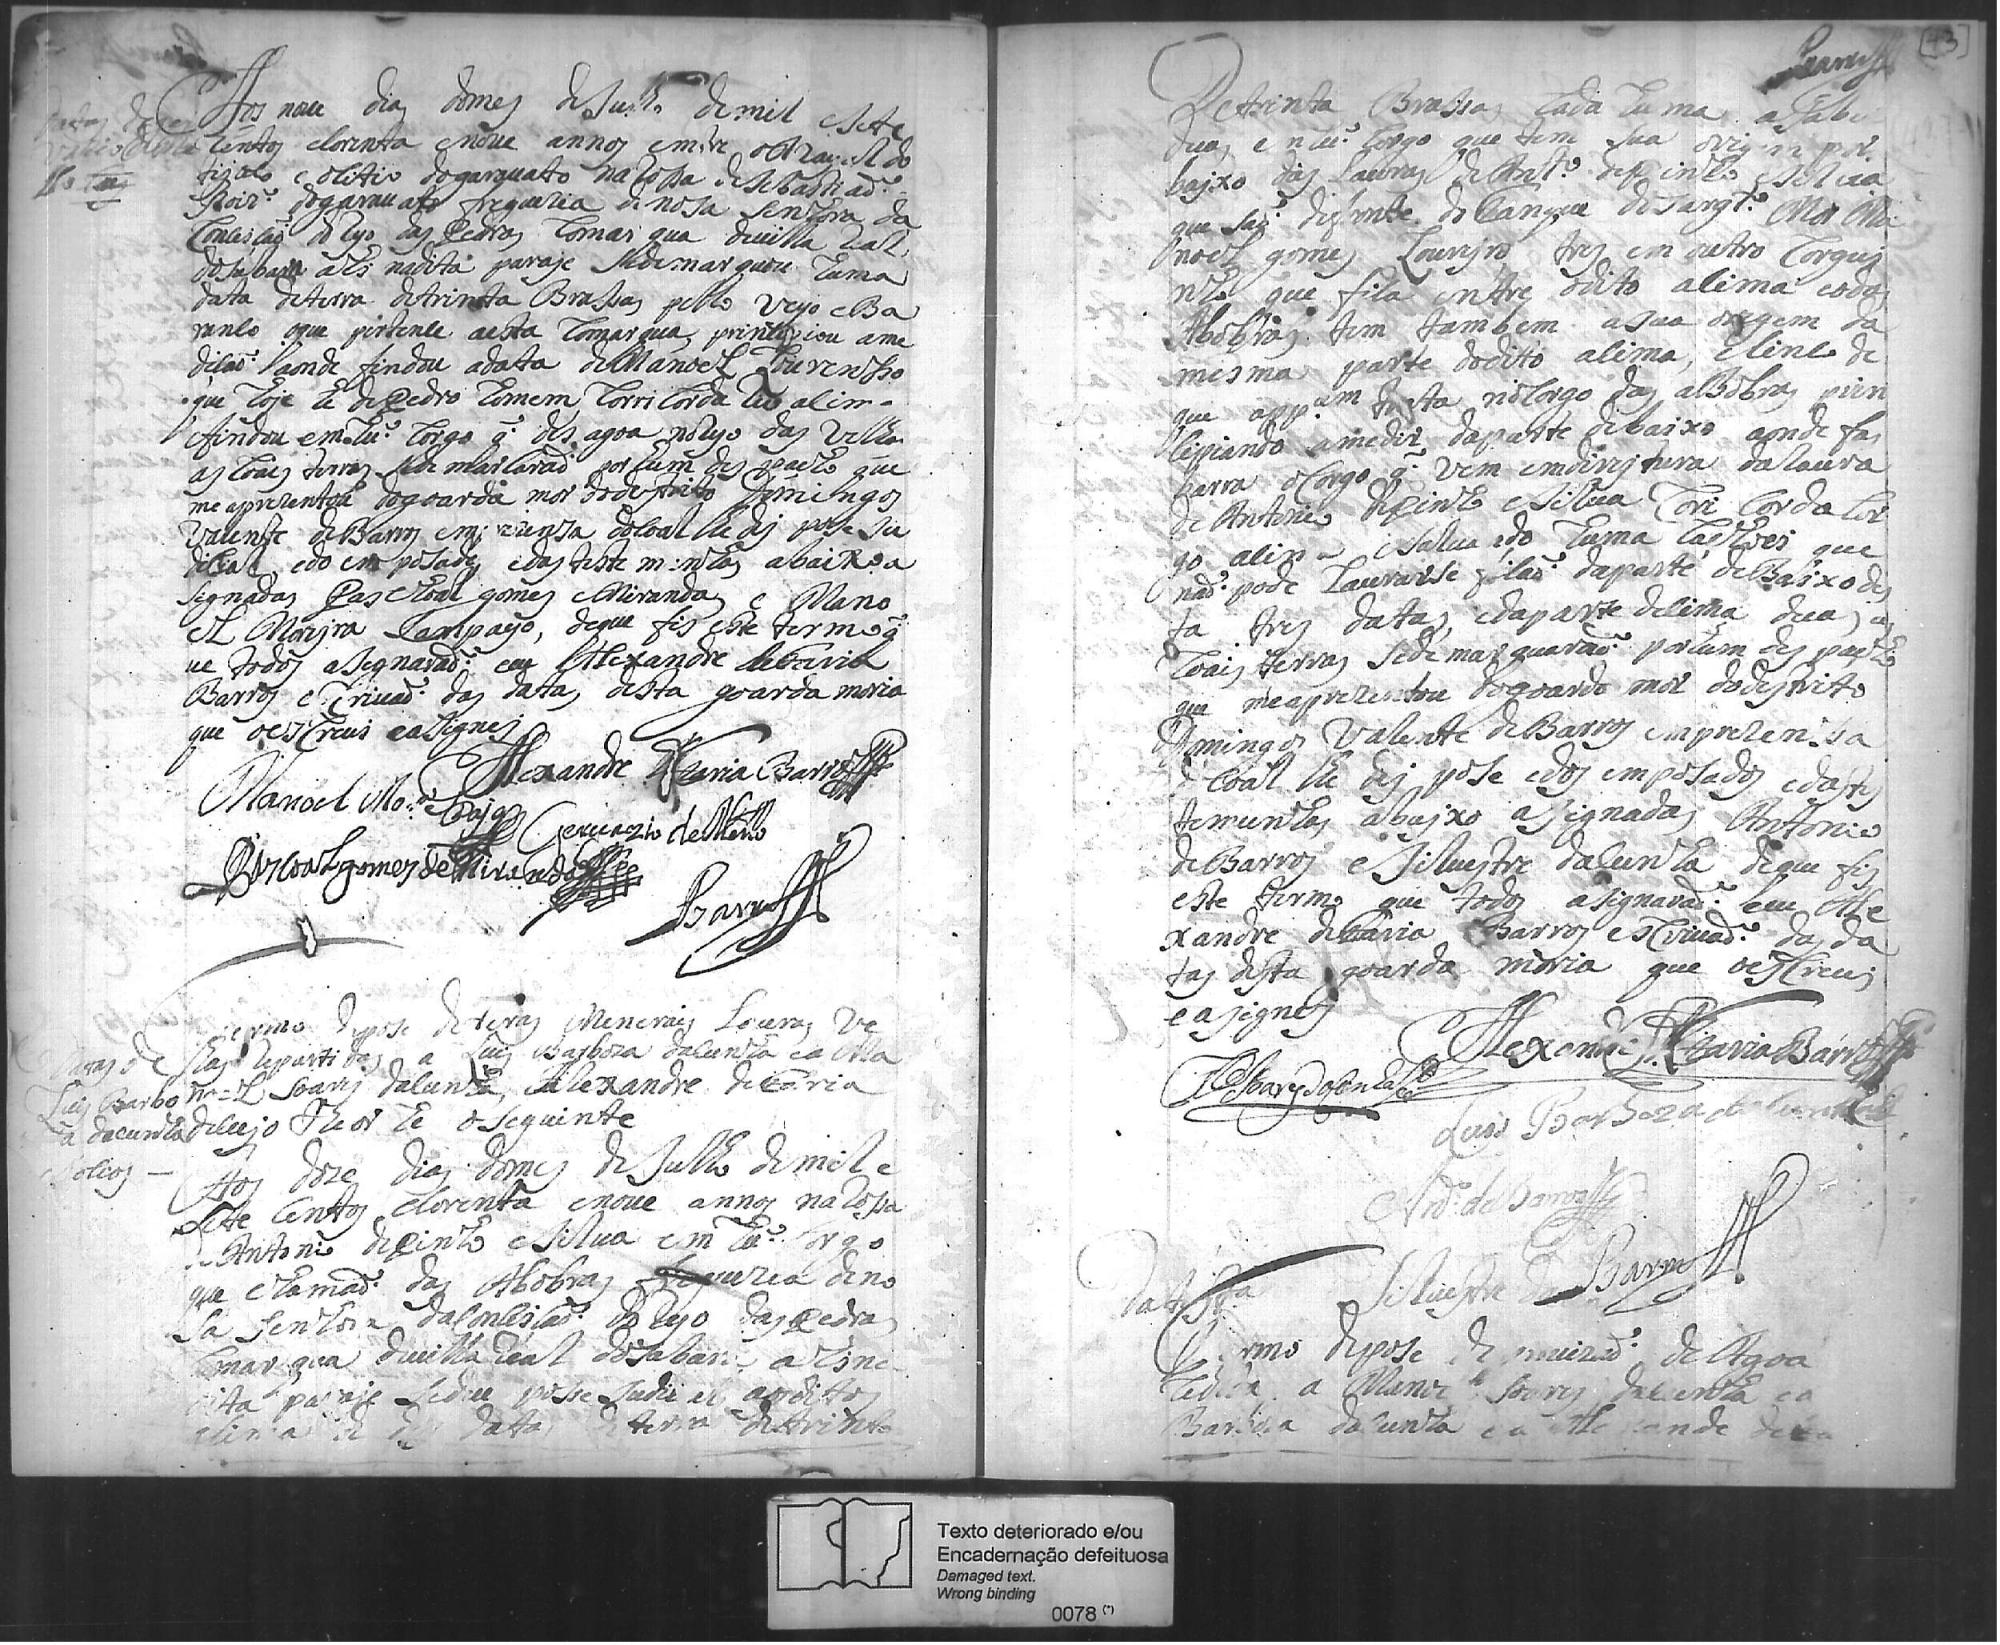 Aos nove dias do mes de Julho de mil e sete
centos e corenta e nove annos
na Rossa de Sebastiaõ
freguezia de nosa senhora da
Conceisaõ do Ryo das Pedras Comarqua de villa Real
do sabara ahi na dita paraje se demarquou huma
data de terra de trinta Brassas pello veyo e Ba
ranco o que pertence a esta Comarqua principiou a me
disaõ haonde findou a data de Manoel Lourensso
que hoje he de Pedro homem Corri Corda Ryo asima
e findou em hũ Corgo q̃ des agoa no Ryo das Velhas
as coais terras se demarcaraõ por hum des pacho que
me aprezentou do goarda mor do destrito Domingos
Valente de Barros em prezensa do coal lhe dej pose ju
dicial e do em posado e das teste munhas abaixo a
signadas Pascoal gomes e Miranda e Mano
el Morejra Campayo, de que fis este termo q̃
ue todos asignaraõ eu Alexandre de Faria
Barros escrivaõ das datas desta goarda moria
que o escrevi e asignej
Alexandre de Faria Barros
Manoel Mo.ra
Gervazio de Mello
Pascoal gomes de Miranda
Barros
Termo de pose de terras Menerais Louras
repartidas a Luis Barboza da cunha e a Ma
noel Soares da cunha e Alexandre de Faria
Luis Barbo
za da cunha
e socios
de cujo Theor he o seguinte
Aos doze dias do mes de Julho de mil e
sete centos e corenta e nove annos na Rossa
de Antonio de Pinto e Silva em hũ Corgo
que chamaõ das Abobras freguezia de no
sa senhora da Conceisaõ do Ryo das Pedras
Comarqua de villa Real do sabara ahi na
dita paraje se deu posse Judicial aos ditos
asima de des datas de terra de trinta
Barros
[43]
De trinta Brassas cada huma a saber
duas em hũ Corgo que tem sua origem por
bajxo das Lavras de Ant.º de Pinto e Silva
que sai defronte do Tanque do Sargt.º Mor Ma
noel gomes Lourejro tres em outro Corguj
nho que fica entre o dito asima e o das
Abobras tem tambem a sua origem da
mesma parte do dito asima, e sinco de
no Corgo das alBobras prin
cipiando a medir da parte de baixo aonde fas
barra o Corgo q̃ vem em direjtura da Lavra
de Antonio de Pinto e Silva Corri Corda Cor
go asima e salvado huma Cachoei que
naõ pode Laurarse ficaõ da parte de Baixo des
ta tres datas e da parte de sima duas as
coais terras se demarquaraõ por hum des pacho
que me aprezentou do goarda mor do destrito
Domingos Valente de Barros em prezensa
do coal lhe dej pose e dos emposados e das tes
temunhas abajxo asignadas Antonio
de Barros e Silvestre da Cunha de que fis
este termo que todos asignaraõ e eu Ale
xandre de Faria Barros escrivaõ das da
tas desta goarda moria que o escrevi
e asignej
Alexandre de Faria Barros
Luis Barboza da Cunha
Ant.º de Barros
Silvestre
Barros
Termo de pose de de Agoa
a Manoel Soares da Cunha e a
Barboza da cunha e a
Texto deteriorado e/ou
Encadernação defeituosa
Damaged text.
Wrong binding
0078 (*)